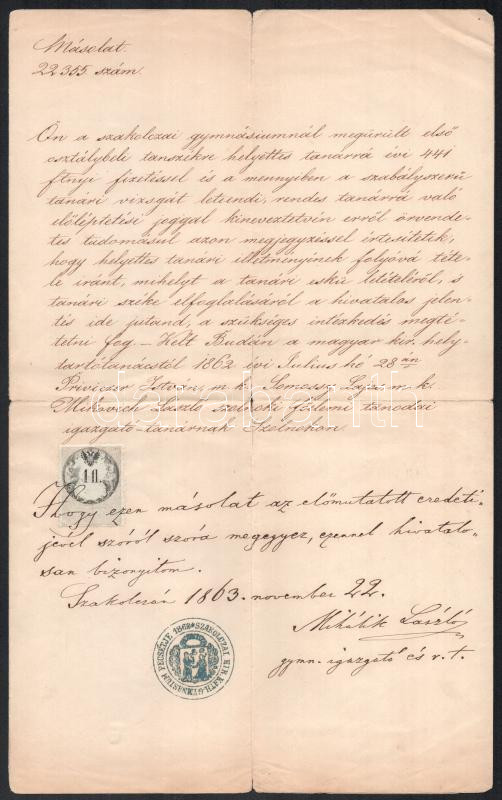 Másolat.
22.355. szám.
Ön a szakolczai gymnásiumnál megürült első
osztálybeli tanszékre helyettes tanárrá évi 441
ftnyi fizetéssel és a mennyiben a szabályszerű
tanári vizsgát leteendi, rendes tanárrá való
előléptetési joggal kineveztetvén erről örvende-
tes tudomásul azon megjegyzéssel értesítetik,
hogy helyettes tanári illetményének folyóvá téte-
le iránt, mihelyt a tanári eskü letételéről, s
tanári széke elfoglalásáról a hivatalos jelen-
tés ide jutand, a szükséges intézkedés megté-
tetni fog. – Kelt Budán a magyar kir. hely-
tartótanácstól 1862 évi Julius hó 28án
Priviczer István, m.k. Lajos m.k.
László szolnoki főelemi tanodai
igazgató-tanárnak Szolnokon.
1 fl.
Hogy ezen másolat az előmutatott eredeti-
jével szóról szóra megegyez, ezennel hivatalo-
san bizonyitom.
Szakolczán 1863. november 22.
Mihálik László
gymn. igazgató és r. t.
SZAKOLCZAI KIR. KATH. GYMNASIUM PECSÉTJE 1862
darabanth